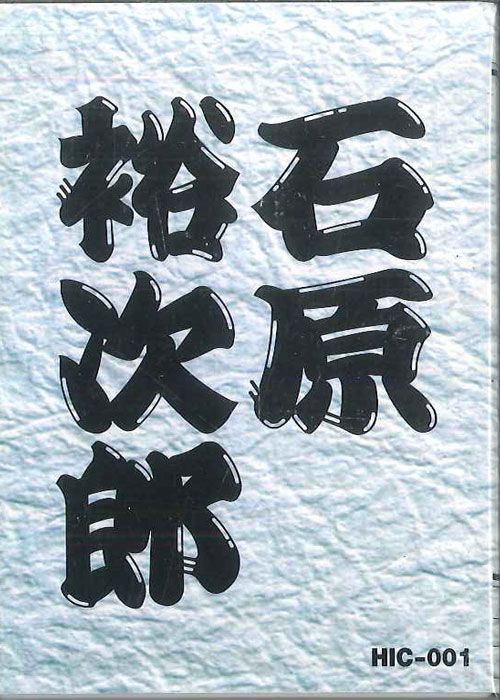 石原
裕次郎
HIC-001